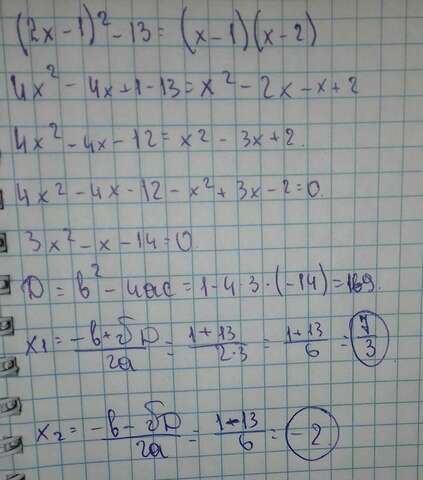 (2x-1)² - 13 = (x-1)(x-2)
4x² - 4x + 1 - 13 = x² - 2x - x + 2
4x² - 4x - 12 = x² - 3x + 2.
4x² - 4x - 12 - x² + 3x - 2 = 0.
3x² - x - 14 = 0.
D = b² - 4ac = 1 - 4·3·(-14) = 169.
x₁ = (-b+√D)/2a = (1+13)/(2·3) = (1+13)/6 = 7/3
x₂ = (-b-√D)/2a = (1-13)/6 = -2.